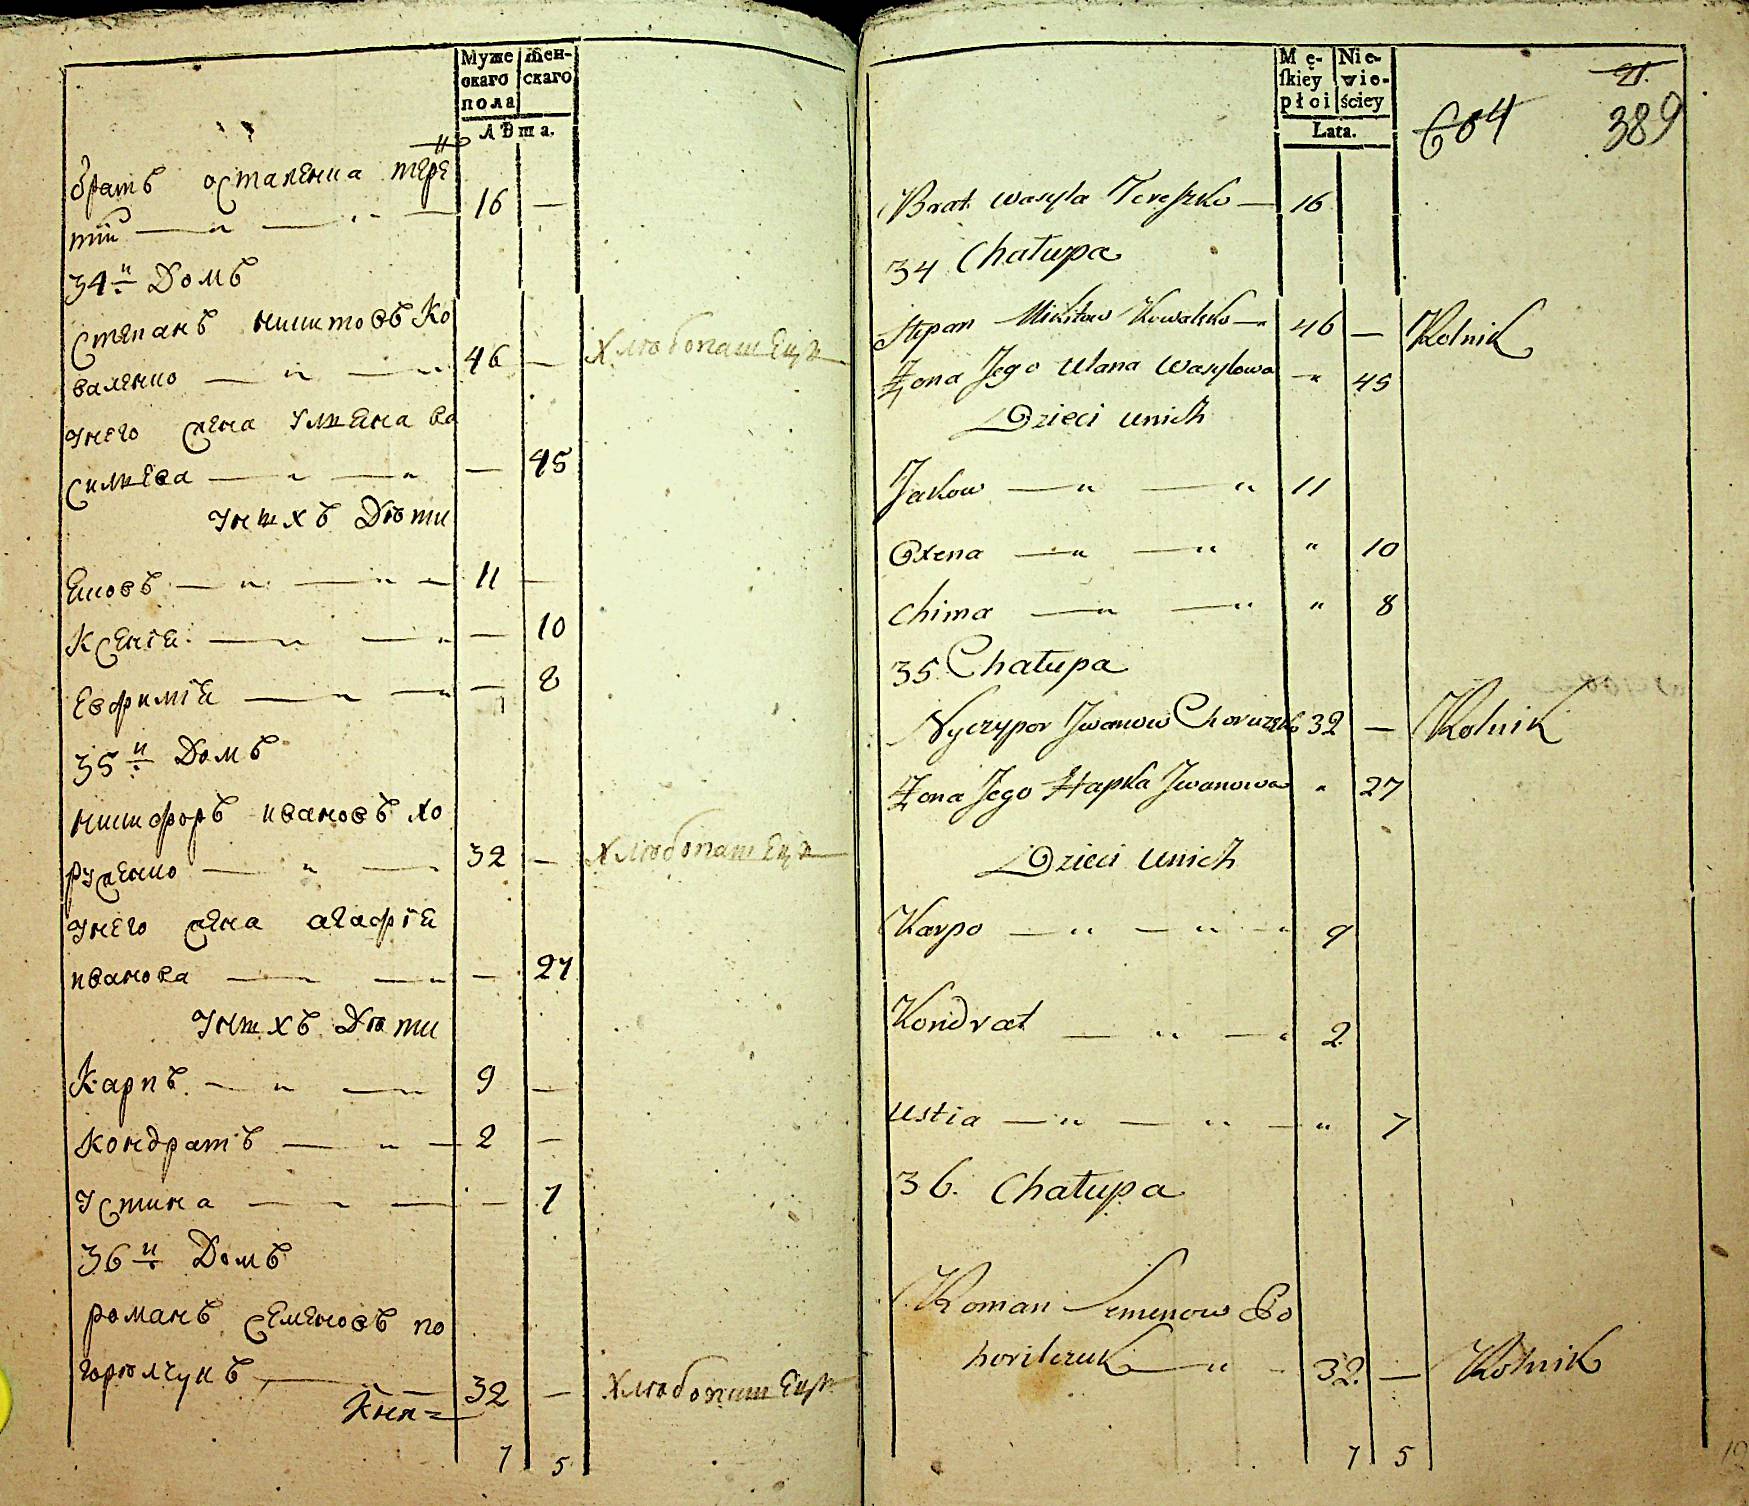 Муже
скаго
пола
Жен-
скаго
Лѣта.
братъ остапенка тере
тій — „ — „ — 16 —
34й Домъ
степанъ никитовъ Ко
валенко — „ — „ 46 — хлѣбопашецъ
унего жена улияна ва
силиева — „ — „ — 45
унихъ Дѣти
Яковъ — „ — „ — 11 —
Ксенія — „ — „ — 10
Евфимія — „ — „ — 8
35й Домъ
никифоръ ивановъ хо
руженко — „ — 32 — хлѣбопашецъ
унего жена агафія
иванова — „ — „ — 27
унихъ Дѣти
Карпъ — „ — „ 9 —
Кондратъ — „ — 2 —
устина — „ — — 7
36й Домъ
романъ семеновъ по
горилчукъ — 32 — хлѣбопашецъ
7 5
Mę-
ſkiey
płci
Nie-
wie-
ściey
Lata.
21.
604 389
Brat wasyla Tereszko — 16
34 Chałupa
Stepan Mikitow Kowalęko — „ 46 — Rolnik
Żona Jego Ulana Wasylowa — „ 45
Dzieci unich
Jakow — „ — „ 11
Oxena — „ — „ „ 10
Chima — „ — „ „ 8
35 Chałupa
Nyczypor Jwanow Choruzęko 32 — Rolnik
Żona Jego Hapka Jwanowa „ 27
Dzieci unich
Karpo — „ — „ — „ 9
Kondrat — „ — „ 2
Ustia — „ — „ — „ 7
36. Chałupa
Roman Semenow Po
horilczuk — „ — 32. — Rolnik
7 5